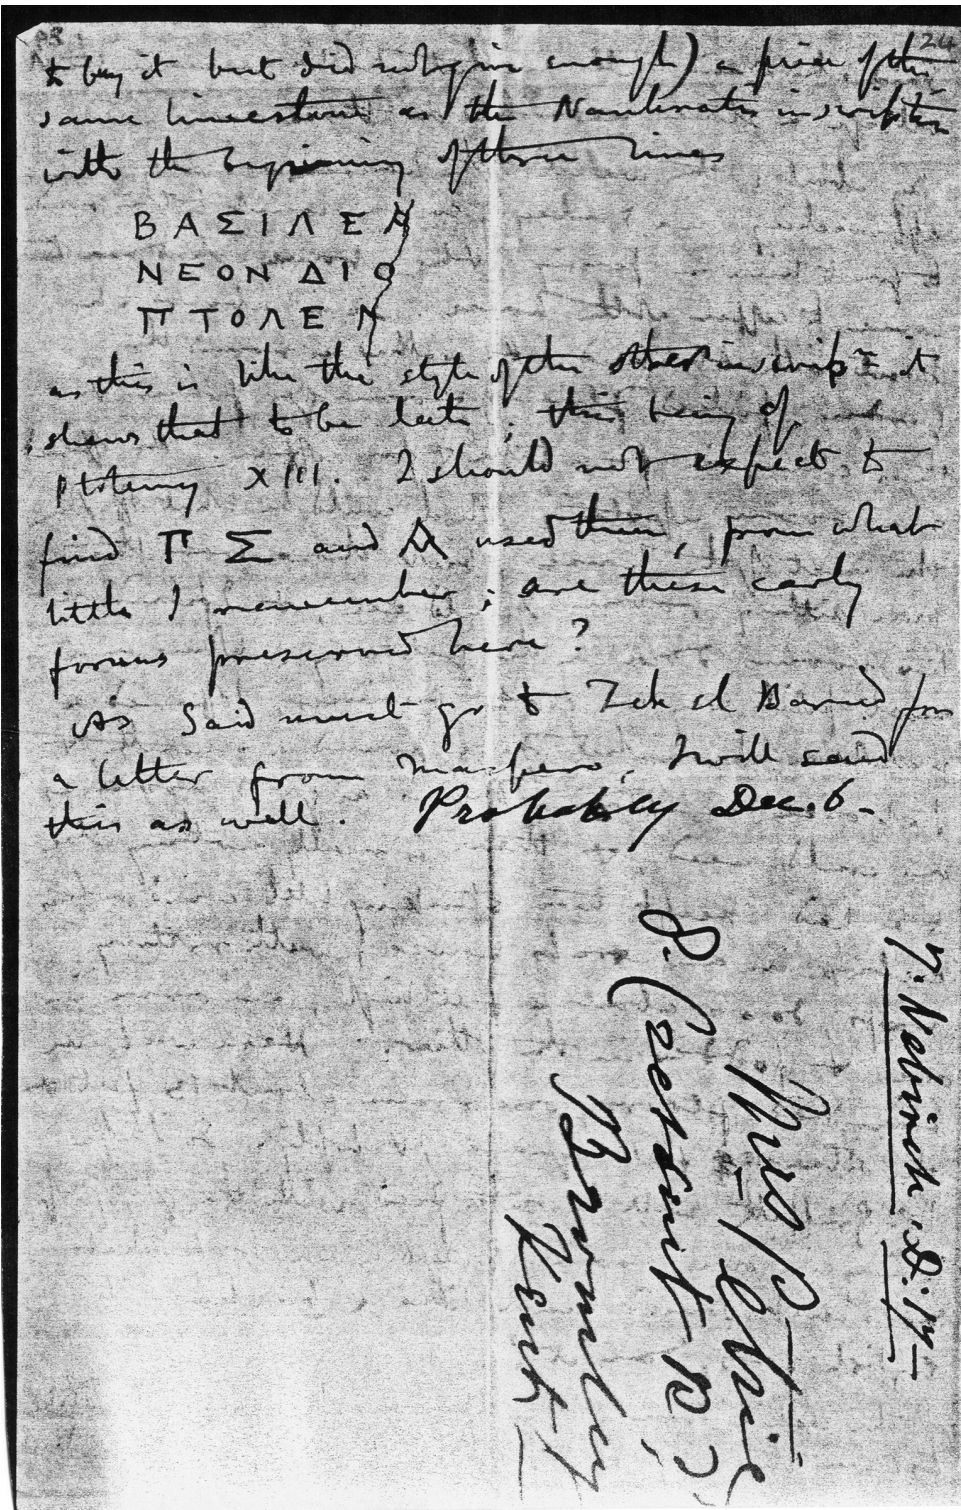 24
to buy it but did not give enough) a piece of the
same limestone as the Naukratis inscription
with the beginning of three lines
ΒΑΣΙΛΕΑ
ΝΕΟΝ ΔΙΟ
ΠΤΟΛΕΝ
as this is like the style of the other inscript= it
shews that to be late, this being of
Ptolemy XIII. I should not expect to
find Π Σ and Α used then, from what
little I remember; are these early
forms preserved here?
As Said must go to Teh el Barud for
a letter from Maspero, I will send
this as well. Probably Dec. 6.
N. Nebireh. D. 17
Mrs Petrie
8. Crescent Rd
Bromley
Kent